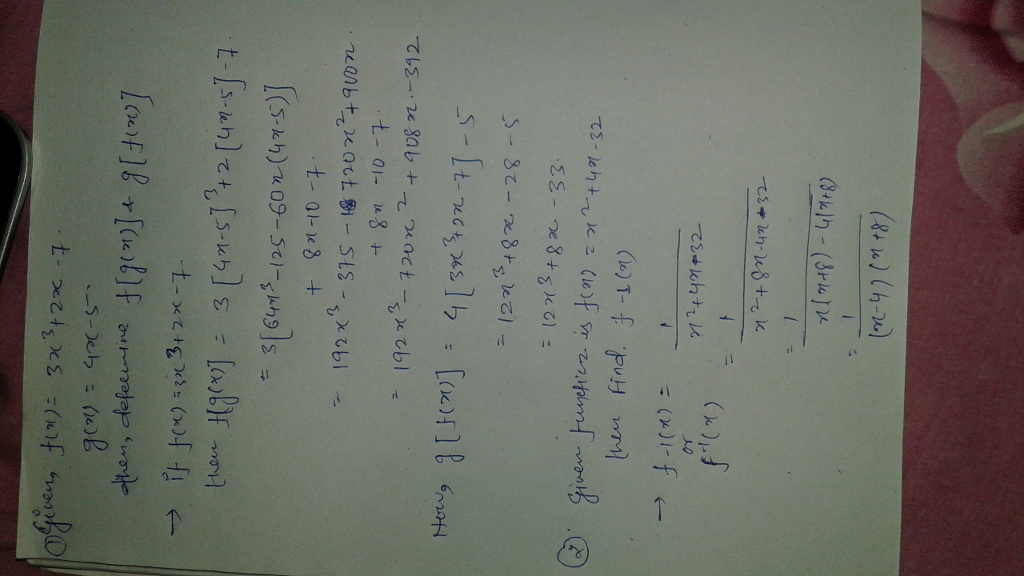 ① Given, f(x) = 3x³+2x-7.
g(x) = 4x-5.
then, determine f[g(x)] & g[f(x)]
→ If f(x) = 3x³+2x-7.
then f[g(x)] = 3[4x-5]³+2[4x-5]-7.
= 3[64x³-125-60x(4x-5)]
+ 8x-10-7.
= 192x³-375-720x²+900x.
+ 8x-10-7.
= 192x³-720x²+908x-392
Now, g[f(x)] = 4[3x³+2x-7]-5
= 12x³+8x-28-5
= 12x³+8x-33.
②. Given function is f(x) = x²+4x-32
then find. f-1(x)
→ f-1(x) = 1/x²+4x-32
or
f⁻¹(x)
= 1/x²+8x-4x-32
= 1/x(x+8)-4(x+8)
= 1/(x-4)(x+8)